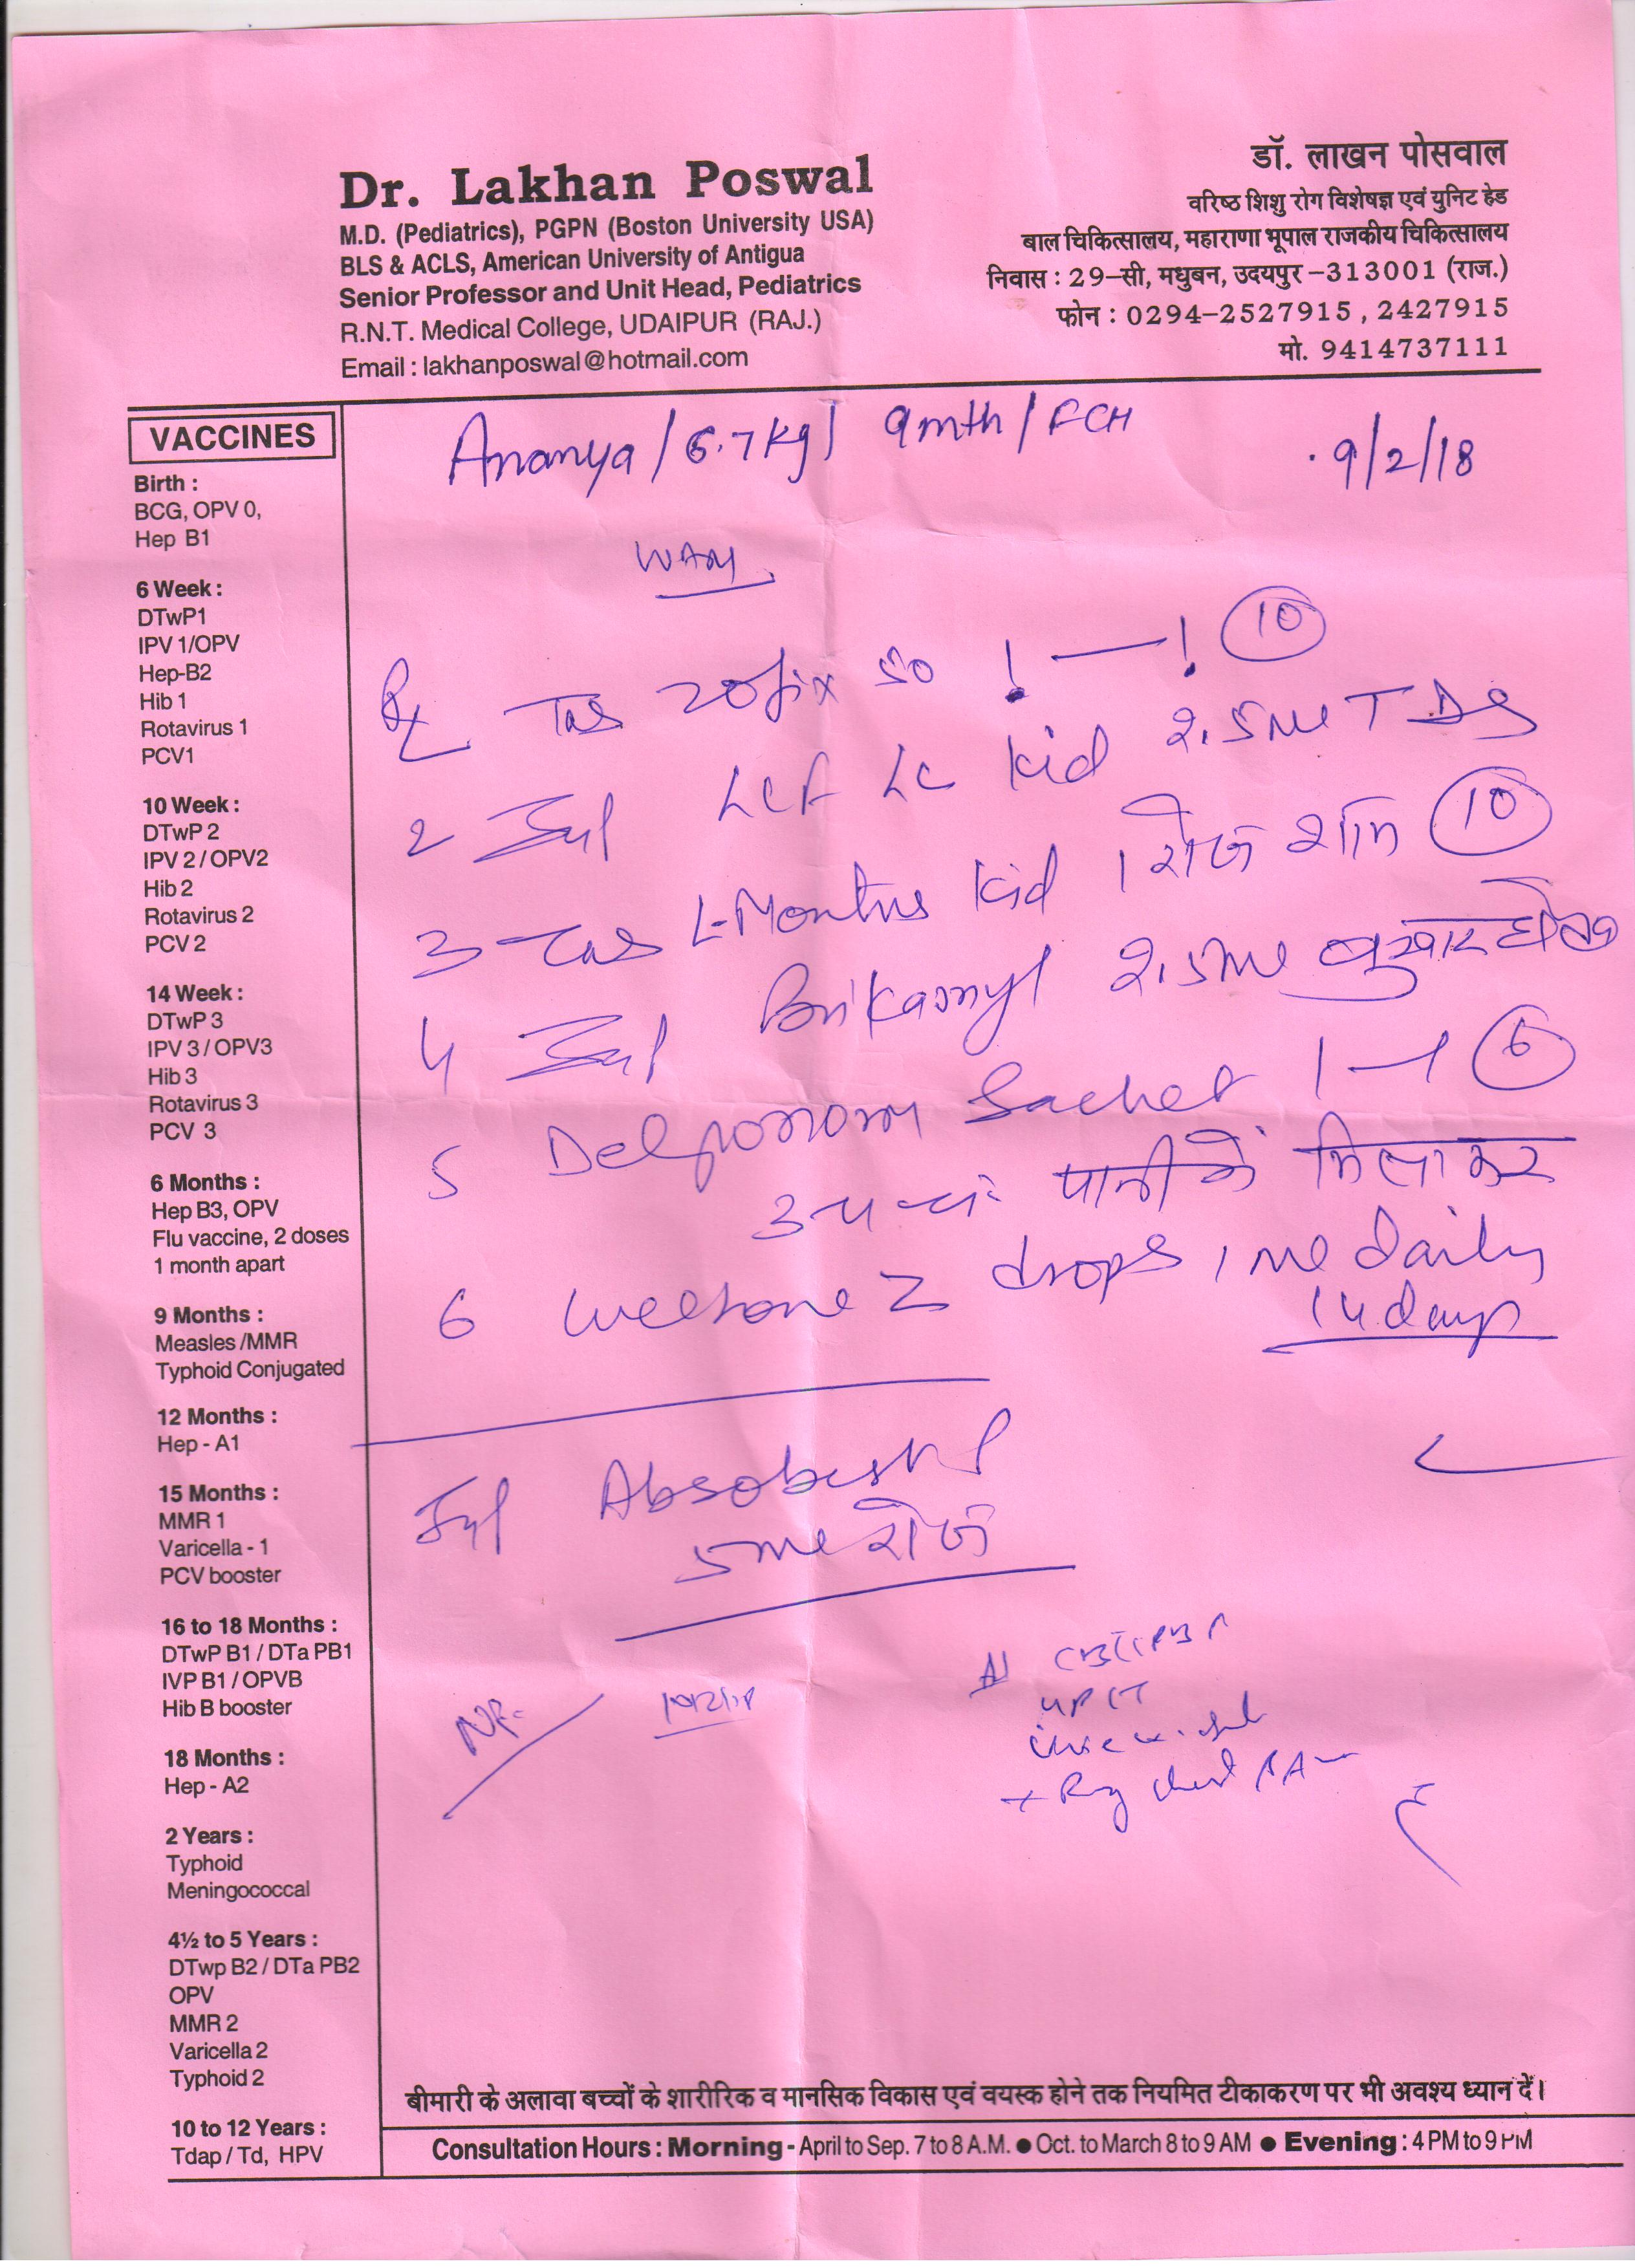 Dr. Lakhan Poswal
M.D. (Pediatrics), PGPN (Boston University USA)
BLS & ACLS, American University of Antigua
Senior Professor and Unit Head, Pediatrics
R.N.T. Medical College, UDAIPUR (RAJ.)
Email : lakhanposwal@hotmail.com
डॉ. लाखन पोसवाल
वरिष्ठ शिशु रोग विशेषज्ञ एवं युनिट हेड
बाल चिकित्सालय, महाराणा भूपाल राजकीय चिकित्सालय
निवास : 29-सी, मधुबन, उदयपुर -313001 (राज.)
फोन : 0294-2527915 , 2427915
मो. 9414737111
VACCINES
Birth :
BCG, OPV 0,
Hep B1
6 Week :
DTwP1
IPV 1/OPV
Hep-B2
Hib 1
Rotavirus 1
PCV1
10 Week :
DTwP 2
IPV 2 / OPV2
Hib 2
Rotavirus 2
PCV 2
14 Week :
DTwP 3
IPV 3 / OPV3
Hib 3
Rotavirus 3
PCV 3
6 Months :
Hep B3, OPV
Flu vaccine, 2 doses
1 month apart
9 Months :
Measles /MMR
Typhoid Conjugated
12 Months :
Hep - A1
15 Months :
MMR 1
Varicella - 1
PCV booster
16 to 18 Months :
DTwP B1 / DTa PB1
IVP B1 / OPVB
Hib B booster
18 Months :
Hep - A2
2 Years :
Typhoid
Meningococcal
4½ to 5 Years :
DTwp B2 / DTa PB2
OPV
MMR 2
Varicella 2
Typhoid 2
10 to 12 Years :
Tdap / Td, HPV
Ananya / 6.7 kg / 9 mth / FCH
9/2/18
Rx Tab 50 10
2 Syp LCF LC Kid 2.5 ml TDS
3 Tab L-Montus Kid 1 रोज शाम 10
4 Syp Brikanyl 2.5 ml बुखार
5 Sachet 1-1 6
पानी में मिलाकर
6 Z drops 1 ml daily
14 days
Syp
5 ml रोज
बीमारी के अलावा बच्चों के शारीरिक व मानसिक विकास एवं वयस्क होने तक नियमित टीकाकरण पर भी अवश्य ध्यान दें।
Consultation Hours : Morning - April to Sep. 7 to 8 A.M. ● Oct. to March 8 to 9 AM ● Evening : 4 PM to 9 PM